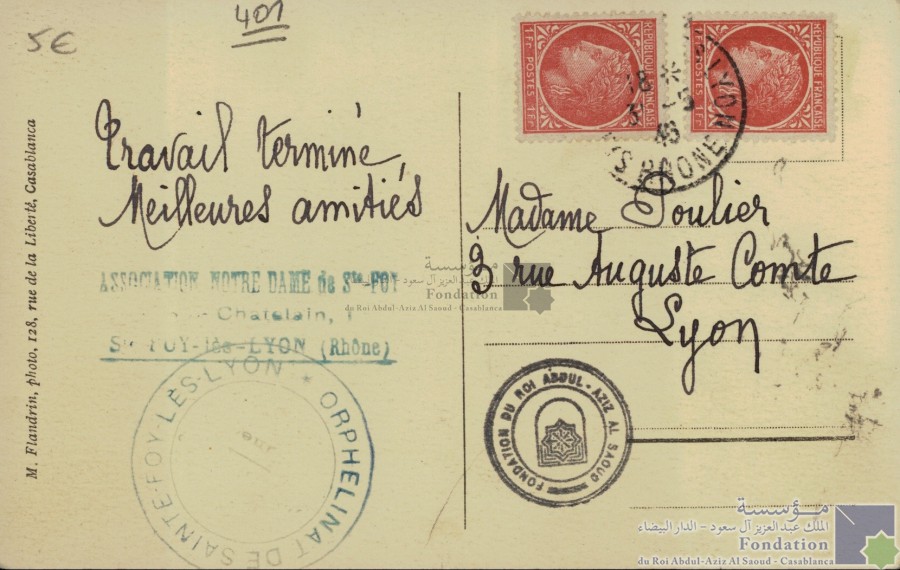 401
5€
RÉPUBLIQUE FRANÇAISE
1Fr POSTES 1Fr
RÉPUBLIQUE FRANÇAISE
1Fr POSTES 1Fr
LYON
RHONE
18
46
Travail terminé
Meilleures amitiés
ASSOCIATION NOTRE DAME de Ste-FOY
Chatelain, 1
Ste FOY-lès-LYON (Rhône)
ORPHELINAT DE SAINTE-FOY-LÈS-LYON
M. Flandrin, photo, 128, rue de la Liberté, Casablanca
Madame Soulier
3 rue Auguste Comte
Lyon
مؤسسة
الملك عبد العزيز آل سعود - الدار البيضاء
Fondation
du Roi Abdul-Aziz Al Saoud - Casablanca
FONDATION DU ROI ABDUL-AZIZ AL SAOUD
مؤسسة
الملك عبد العزيز آل سعود - الدار البيضاء
Fondation
du Roi Abdul-Aziz Al Saoud - Casablanca